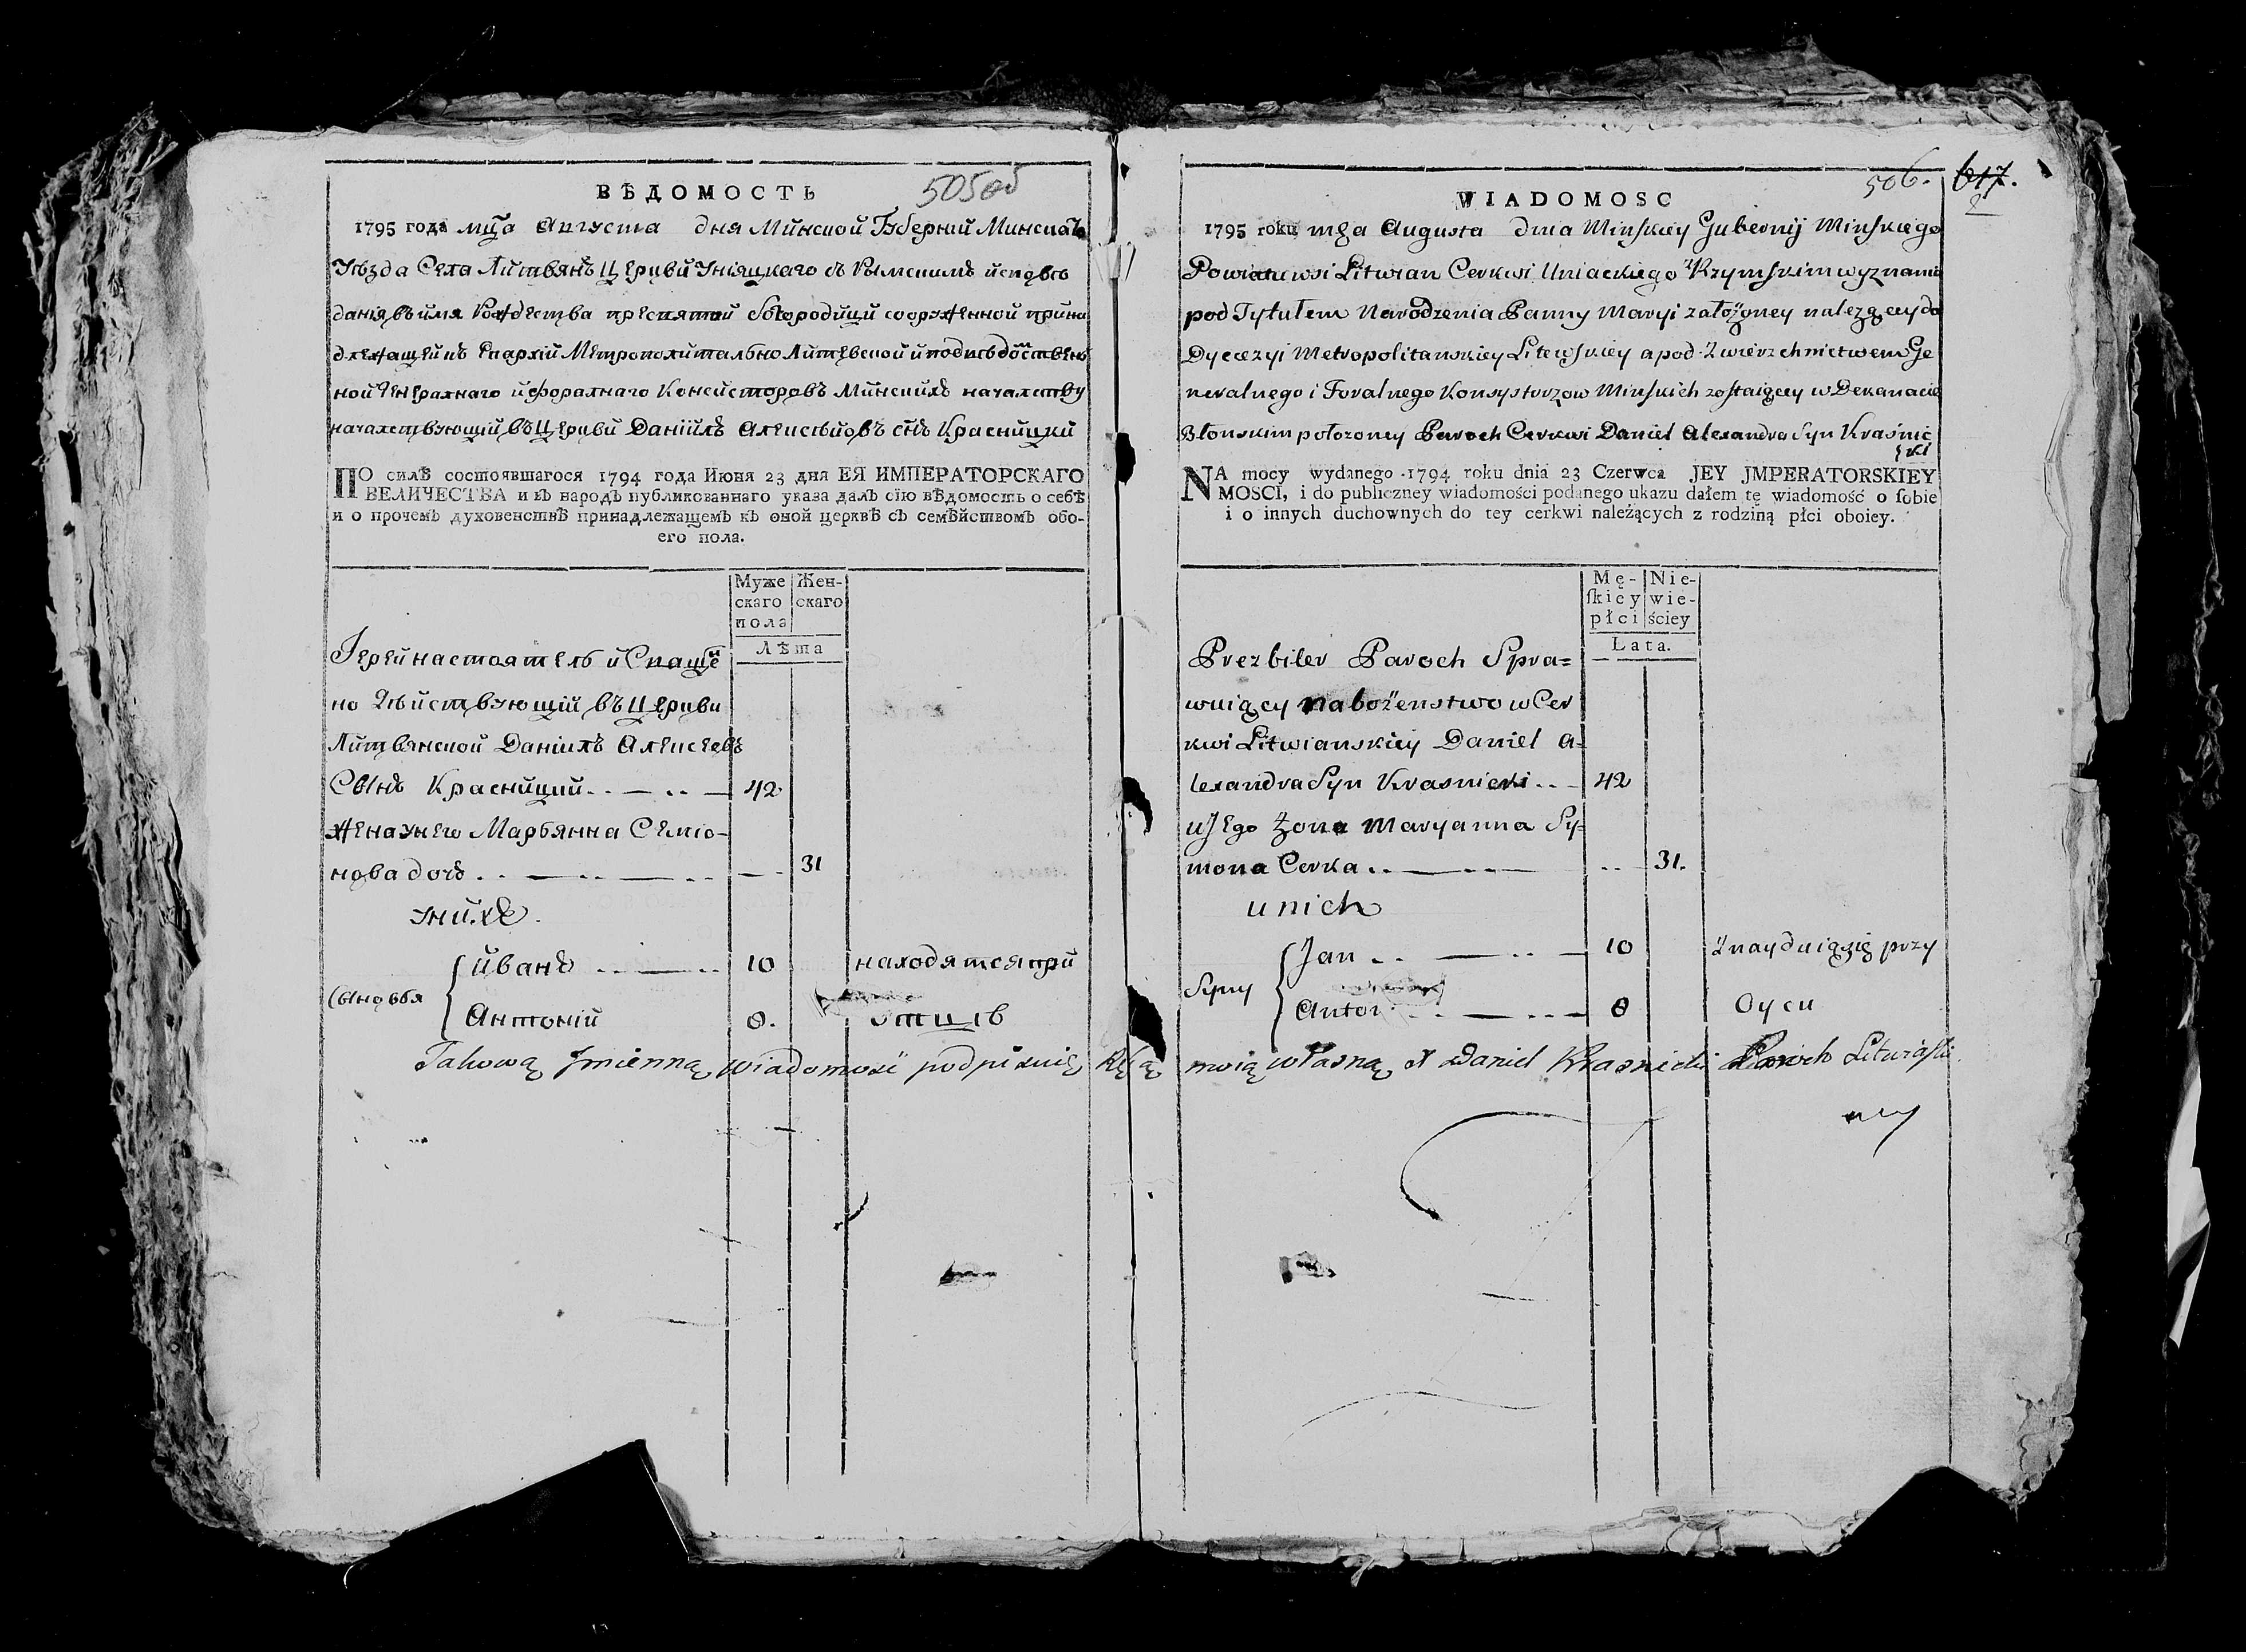 ВѢДОМОСТЬ
505об
1795 года мц̃а Августа дня Минской Гꙋберніи Минскаго
Уѣзда Села Литвянъ Церкви Уніяцкаго съ Рымскимъ исповѣ
данія въ имя Рождества пресвятой Богородици сооруженной прина
длежащей къ Епархіи Метрополитально Литевской и подвѣдомствен
ной Генералнаго и форалнаго Консисторовъ Минскихъ началству
началствующій въ Церкви Даніилъ Алексѣйовъ сн̃ъ Красницкій
ПО силѣ состоявшагося 1794 года Июня 23 дня ЕЯ ИМПЕРАТОРСКАГО
ВЕЛИЧЕСТВА и въ народъ публикованнаго указа далъ сїю вѣдомость о себѣ
и о прочемъ духовенствѣ принадлежащемъ къ оной церквѣ съ семѣйствомъ обо-
его пола.
Муже Жен-
скаго скаго
пола
Лѣта
Іерей настоятель и Сващен
но Дѣйствующій въ Церкви
Литвянской Даніилъ Алексеевъ
Сынъ Красницкій 42
жена у него Марьянна Семіо-
нова дочь 31
у них
Сыновья
Иванъ 10 находятся при
Антоній 8. Отцѣ
WIADOMOSC
506. 617.
1795 roku mga Augusta dnia Minskiey Gubernij Minskiego
Powiatu wsi Litwian Cerkwi Uniackiego z Rzymskim wyznania
pod Tytułem Narodzenia Panny Maryi założoney należącey do
Dyecezyi Metropolitanskiey Litewskiey a pod Zwierzchnictwem Ge
neralnego i Foralnego Konsystorzow Minskich zostaiącey w Dekanacie
Błonskim położoney Paroch Cerkwi Daniel Alexandra Syn Kraśnic
ki
NA mocy wydanego 1794 roku dnia 23 Czerwca JEY JMPERATORSKIEY
MOSCI, i do publiczney wiadomości podanego ukazu dałem tę wiadomość o sobie
i o innych duchownych do tey cerkwi należących z rodziną płci oboiey.
Mę- Nie-
skiey wie-
płci ściey
Lata.
Prezbiter Paroch Spra=
wuiący nabożenstwo w Cer
kwi Litwianskiey Daniel A=
lexandra Syn Krasnicki 42
u Jego Żona Maryanna Sy=
mona Corka 31.
u nich
Syny
Jan 10 Znayduią się przy
Anton 8 Oycu
Takową Jmienną wiadomość podpisuię Ręką moią własną X Daniel Krasnicki Paroch Litwiański